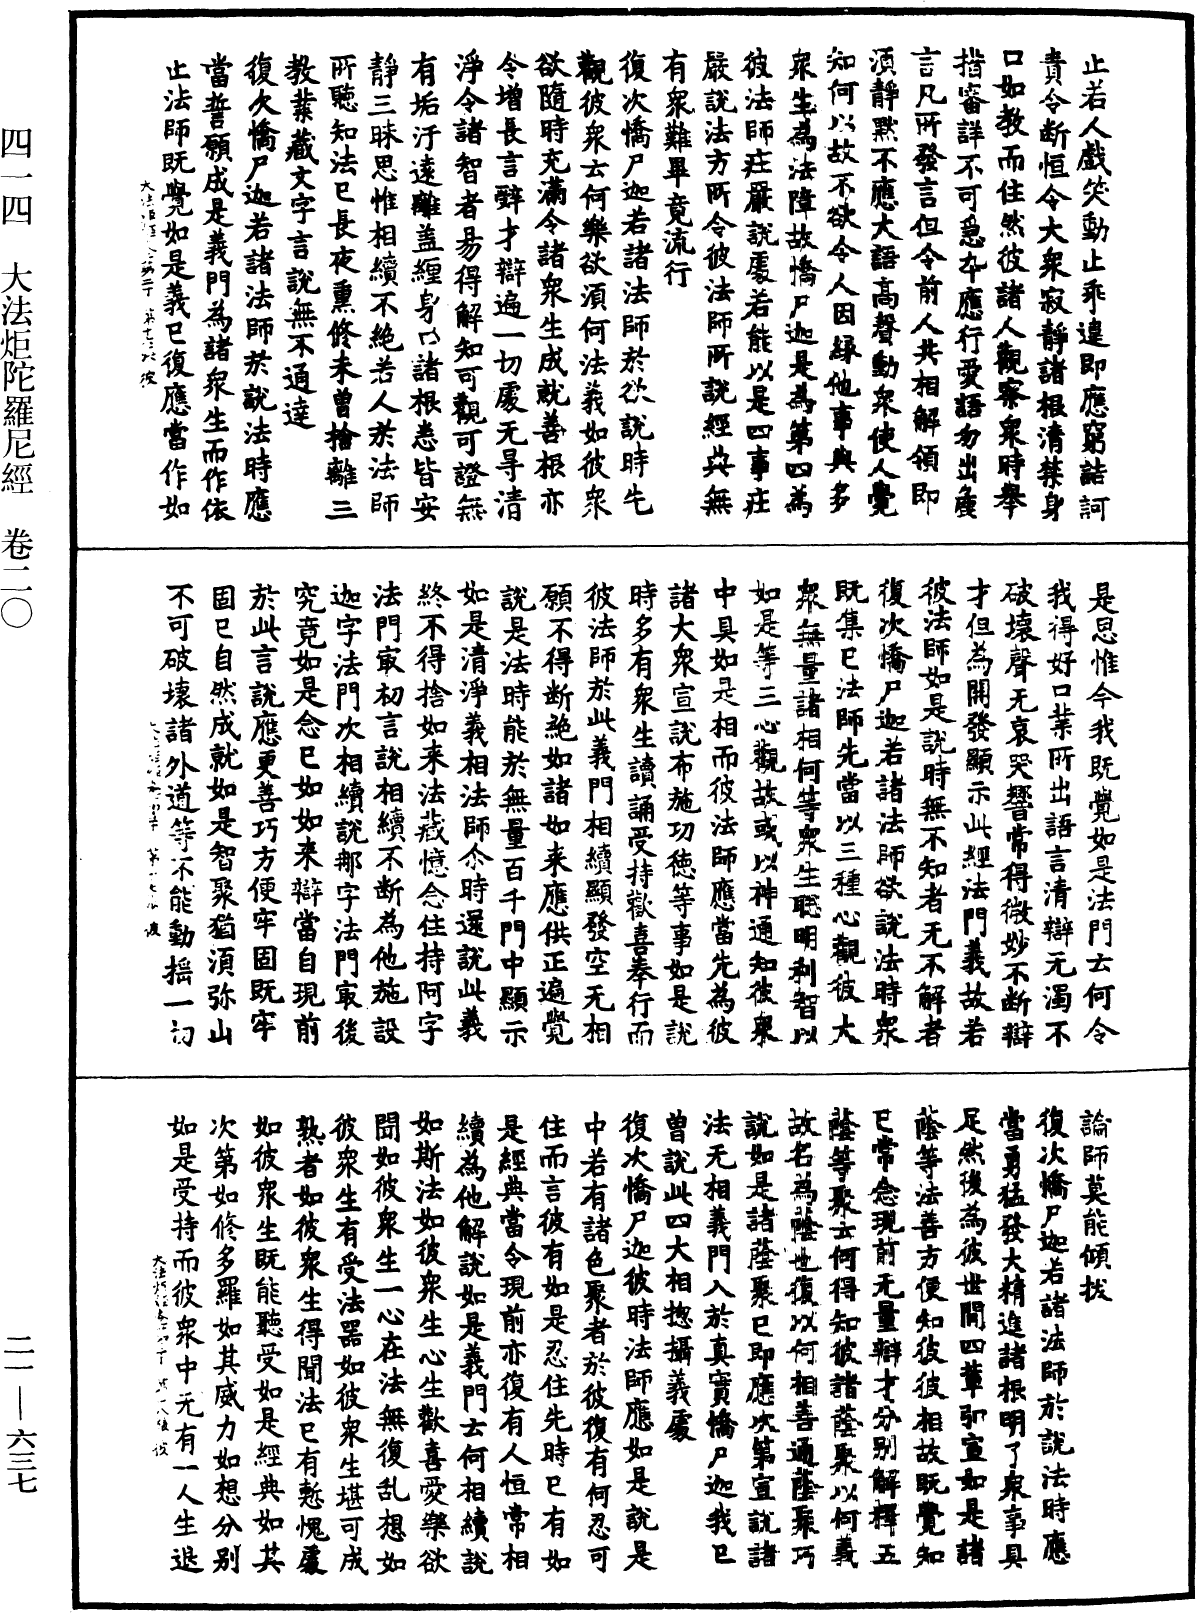 四一四　大法炬陀羅尼經　卷二〇
二一—六三七
止若人戲笑動止乖違即應窮詰訶
責令断恒令大衆寂靜諸根清禁身
口如教而住然彼諸人觀察衆時舉
措審詳不可急卒應行愛語勿出麁
言凡所發言但令前人共相解領即
須靜默不應大語高聲動衆使人覺
知何以故不欲令人因緣他事與多
衆生為法障故憍尸迦是為第四為
彼法師庄嚴說處若能以是四事庄
嚴說法方所令彼法師所說經典無
有衆難畢竟流行
復次憍尸迦若諸法師於欲說時先
觀彼衆云何樂欲須何法義如彼衆
欲隨時充滿令諸衆生成就善根亦
令增長言辭才辯遍一切處无㝵清
淨令諸智者易得解知可觀可證無
有垢汙遠離盖纏身口諸根悉皆安
靜三昧思惟相續不絶若人於法師
所聽知法已長夜熏修未曾捨離三
教業藏文字言說無不通達
復次憍尸迦若諸法師於說法時應
當誓願成是義門為諸衆生而作依
止法師既覺如是義已復應當作如
是思惟今我既覺如是法門云何令
我得好口業所出語言清辯无濁不
破壞聲无哀哭響常得微妙不断辯
才但為開發顯示此經法門義故若
彼法師如是說時無不知者无不解者
復次憍尸迦若諸法師欲說法時衆
既集已法師先當以三種心觀彼大
衆無量諸相何等衆生聰明利智以
如是等三心觀故或以神通知彼衆
中具如是相而彼法師應當先為彼
諸大衆宣說布施功徳等事如是說
時多有衆生讀誦受持歡喜奉行而
彼法師於此義門相續顯發空无相
願不得断絶如諸如来應供正遍覺
說是法時能於無量百千門中顯示
如是清淨義相法師尒時還說此義
終不得捨如来法藏憶念住持阿字
法門㝡初言說相續不断為他施設
迦字法門次相續說那字法門㝡後
究竟如是念已如如来辯當自現前
於此言說應更善巧方便牢固既牢
固已自然成就如是智聚猶須弥山
不可破壞諸外道等不能動揺一切
論師莫能傾拔
復次憍尸迦若諸法師於說法時應
當勇猛發大精進諸根明了衆事具
足然後為彼世間四輩宣如是諸
蔭等法善方便知彼彼相故既覺知
已常念現前无量辯才分別解釋五
蔭等聚云何得知彼諸蔭聚以何義
故名為蔭也復以何相善通蔭聚巧
說如是諸蔭聚已即應次第宣說諸
法无相義門入於真實憍尸迦我已
曽說此四大相揔攝義處
復次憍尸迦彼時法師應如是說是
中若有諸色聚者於彼復有何忍可
住而言彼有如是忍住先時已有如
是經典當令現前亦復有人恒常相
續為他解說如是義門云何相續說
如斯法如彼衆生心生歡喜愛樂欲
聞如彼衆生一心在法無復乱想如
彼衆生有受法器如彼衆生堪可成
熟者如彼衆生得聞法已有慙愧處
如彼衆生既能聽受如是經典如其
次第如修多羅如其威力如想分别
如是受持而彼衆中无有一人生退